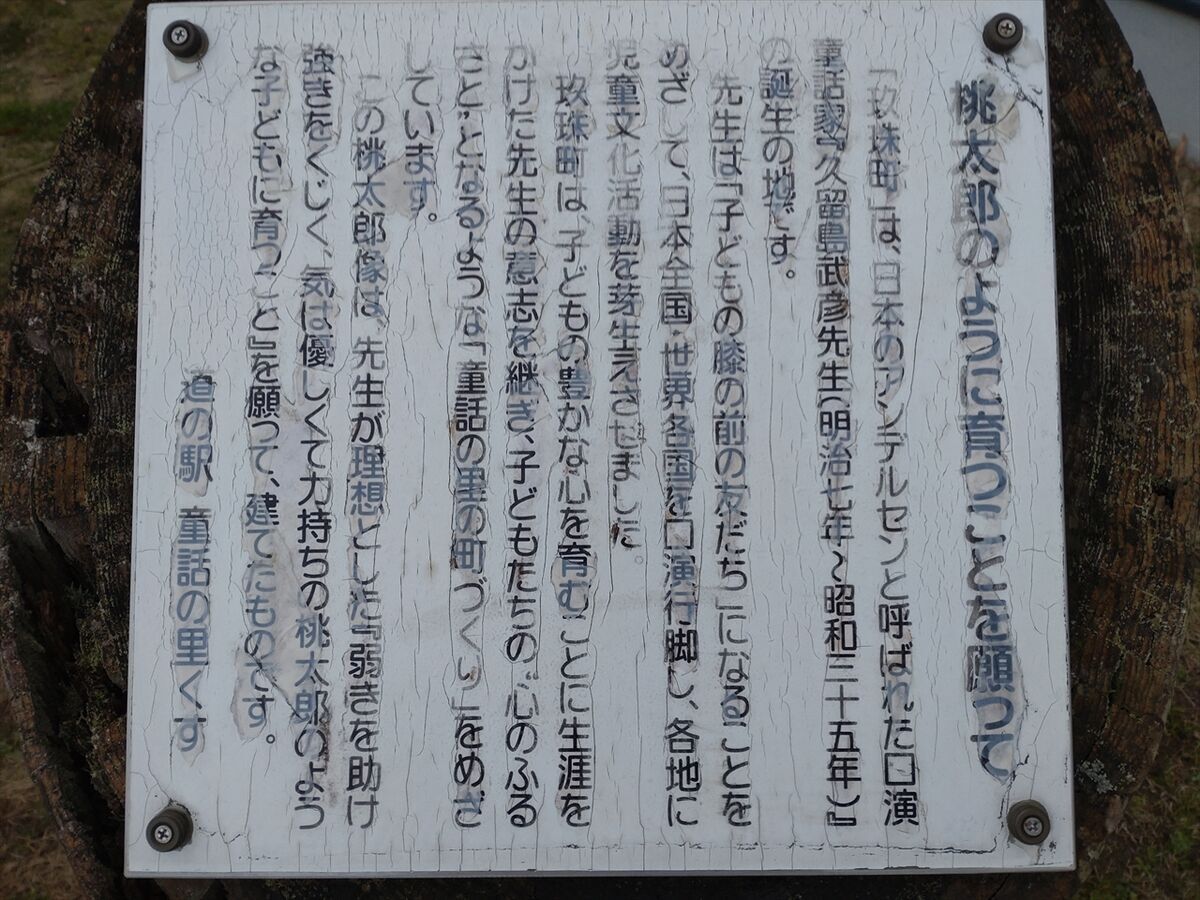 桃太郎のように育つことを願って
「玖珠町」は、日本のアンデルセンと呼ばれた口演
童話家『久留島武彦先生(明治七年～昭和三十五年)』
の誕生の地です。
先生は「子どもの膝の前の友だち」になることを
めざして、日本全国・世界各国を口演行脚し、各地に
児童文化活動を芽生えさせました。
玖珠町は、子どもの豊かな心を育むことに生涯を
かけた先生の意志を継ぎ、子どもたちの“心のふる
さと”となるような「童話の里の町づくり」をめざ
しています。
この桃太郎像は、先生が理想とした『弱きを助け
強きをくじく、気は優しくて力持ちの桃太郎のよう
な子どもに育つこと』を願って、建てたものです。
道の駅 童話の里くす